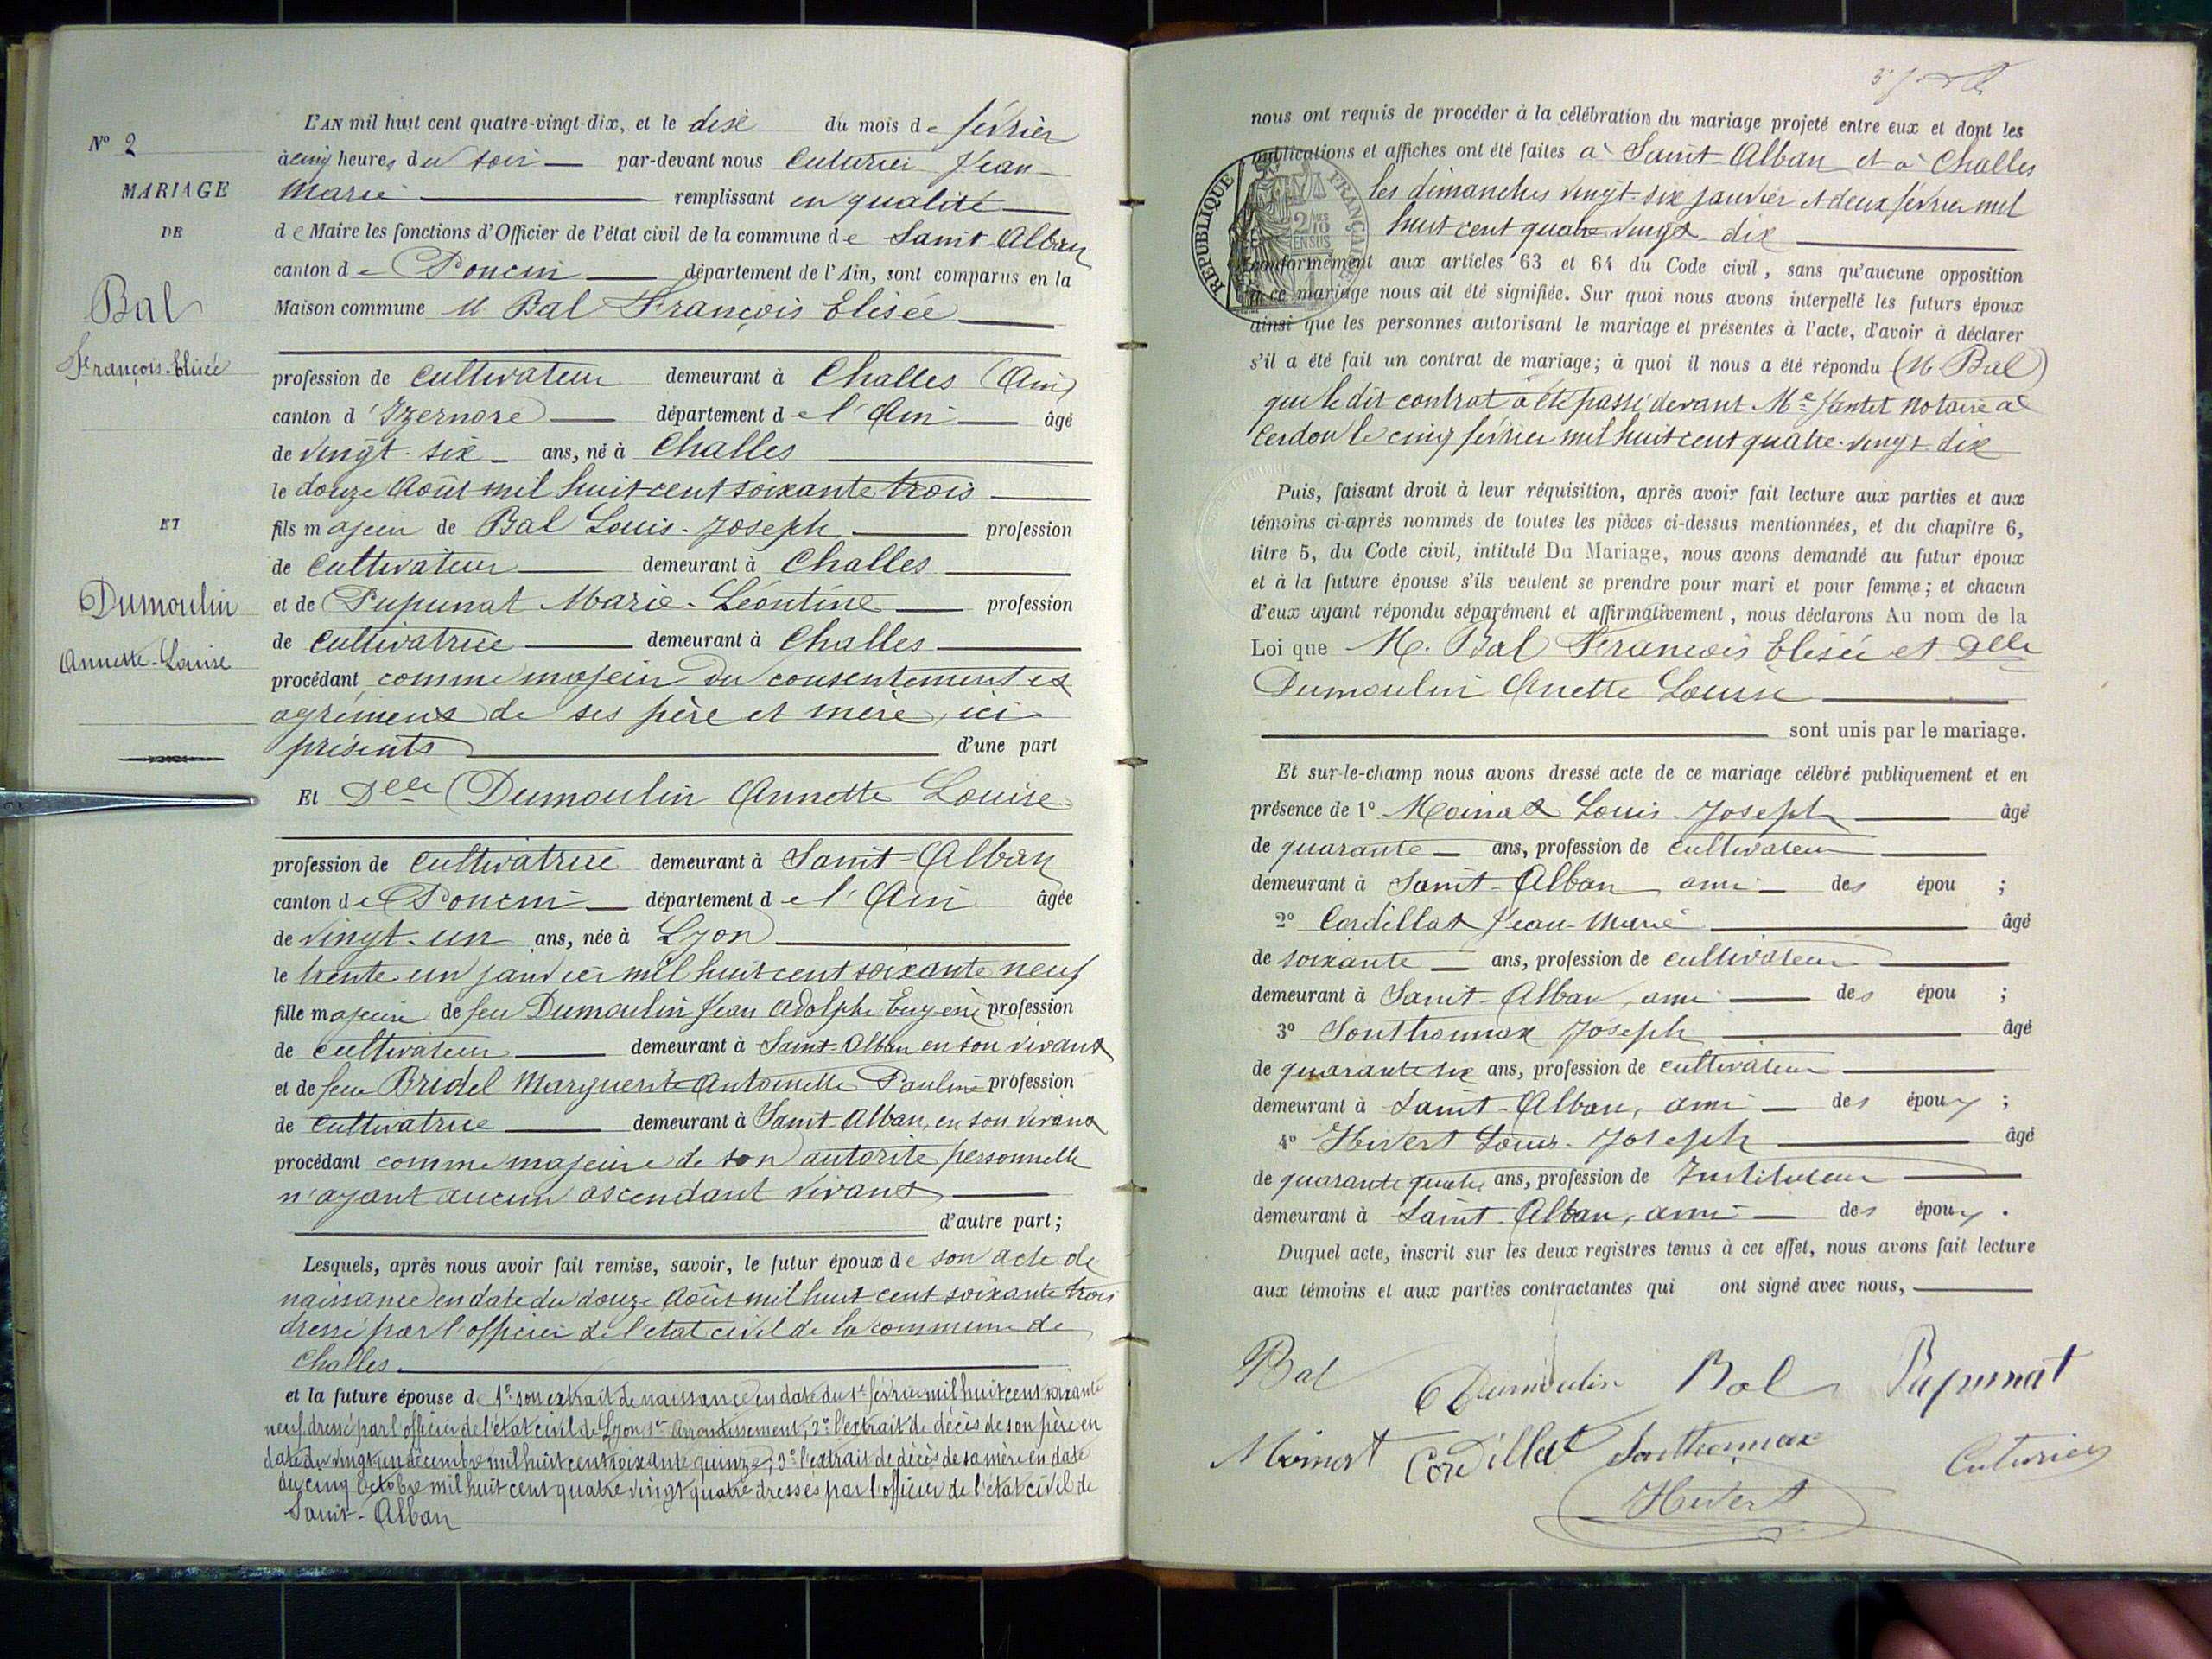 N° 2
MARIAGE
DE
Bal
François-Elisée
ET
Dumoulin
Annette-Louise
L'AN mil huit cent quatre-vingt-dix, et le dix du mois de février
à cinq heures du soir — par-devant nous Cuturier Jean-
Marie — remplissant en qualité —
de Maire les fonctions d'Officier de l'état civil de la commune de Saint-Alban
canton de Poncin — département de l'Ain, sont comparus en la
Maison commune M. Bal François Elisée —
profession de cultivateur demeurant à Challes (Ain)
canton d'Izernore — département de l'Ain — âgé
de vingt-six — ans, né à Challes —
le douze Août mil huit cent soixante trois —
fils majeur de Bal Louis-Joseph — profession
de cultivateur — demeurant à Challes —
et de Pupunat Marie-Léontine — profession
de cultivatrice — demeurant à Challes —
procédant comme majeur du consentement et
agrément de ses père et mère, ici
présents — d'une part
Et Delle Dumoulin Annette Louise
profession de cultivatrice demeurant à Saint-Alban
canton de Poncin — département de l'Ain âgée
de vingt-un ans, née à Lyon —
le trente un janvier mil huit cent soixante neuf
fille majeure de feu Dumoulin Jean Adolphe Eugène profession
de cultivateur — demeurant à Saint-Alban en son vivant
et de feue Bridel Marguerite Antoinette Pauline profession
de cultivatrice — demeurant à Saint-Alban, en son vivant
procédant comme majeure de son autorité personnelle
n'ayant aucun ascendant vivant —
d'autre part;
Lesquels, après nous avoir fait remise, savoir, le futur époux de son acte de
naissance en date du douze Août mil huit cent soixante trois
dressé par l'officier de l'état civil de la commune de
Challes. —
et la future épouse de 1° son extrait de naissance en date du 1er février mil huit cent soixante
neuf, dressé par l'officier de l'état civil de Lyon 1er Arrondissement; 2° l'extrait de décès de son père en
date du vingt un décembre mil huit cent soixante quinze; 3° l'extrait de décès de sa mère en date
du cinq Octobre mil huit cent quatre vingt quatre dressés par l'officier de l'état civil de
Saint-Alban
nous ont requis de procéder à la célébration du mariage projeté entre eux et dont les
publications et affiches ont été faites à Saint-Alban et à Challes
les dimanches vingt-six janvier et deux février mil
huit cent quatre vingt-dix —
RÉPUBLIQUE FRANÇAISE
2/10 EN SUS
conformément aux articles 63 et 64 du Code civil, sans qu'aucune opposition
à ce mariage nous ait été signifiée. Sur quoi nous avons interpellé les futurs époux
ainsi que les personnes autorisant le mariage et présentes à l'acte, d'avoir à déclarer
s'il a été fait un contrat de mariage; à quoi il nous a été répondu (M. Bal)
que le dit contrat a été passé devant Me Jantet Notaire à
Cerdon le cinq février mil huit cent quatre-vingt-dix
Puis, faisant droit à leur réquisition, après avoir fait lecture aux parties et aux
témoins ci-après nommés de toutes les pièces ci-dessus mentionnées, et du chapitre 6,
titre 5, du Code civil, intitulé Du Mariage, nous avons demandé au futur époux
et à la future épouse s'ils veulent se prendre pour mari et pour femme; et chacun
d'eux ayant répondu séparément et affirmativement, nous déclarons Au nom de la
Loi que M. Bal François Elisée et Delle
Dumoulin Anette Louise —
— sont unis par le mariage.
Et sur-le-champ nous avons dressé acte de ce mariage célébré publiquement et en
présence de 1° Moinat Louis-Joseph — âgé
de quarante — ans, profession de cultivateur —
demeurant à Saint-Alban ami — des épou ;
2° Cordillat Jean-Marie — âgé
de soixante — ans, profession de cultivateur —
demeurant à Saint-Alban, ami — des épou ;
3° Southonnax Joseph — âgé
de quarante six ans, profession de cultivateur —
demeurant à Saint-Alban, ami — des époux ;
4° Hivert Louis-Joseph — âgé
de quarante quatre ans, profession de Instituteur —
demeurant à Saint-Alban, ami — des époux .
Duquel acte, inscrit sur les deux registres tenus à cet effet, nous avons fait lecture
aux témoins et aux parties contractantes qui ont signé avec nous, —
Bal Dumoulin Bal Pupunat
Moinat Cordillat Southonnax Cuturier
Hivert